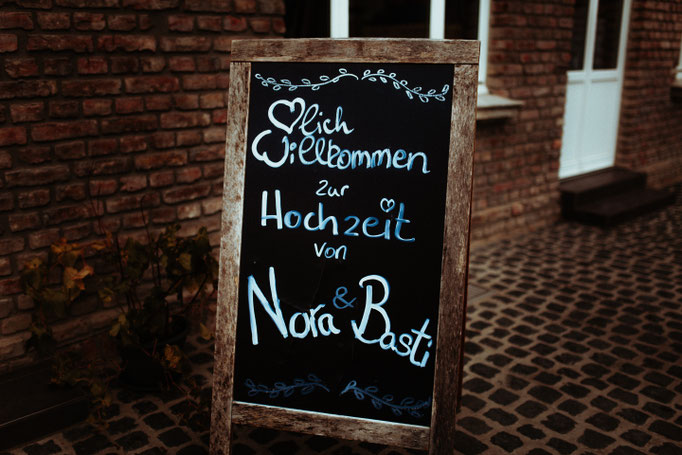 ♡lich
Willkommen
zur
Hochzeit
von
Nora &
Basti